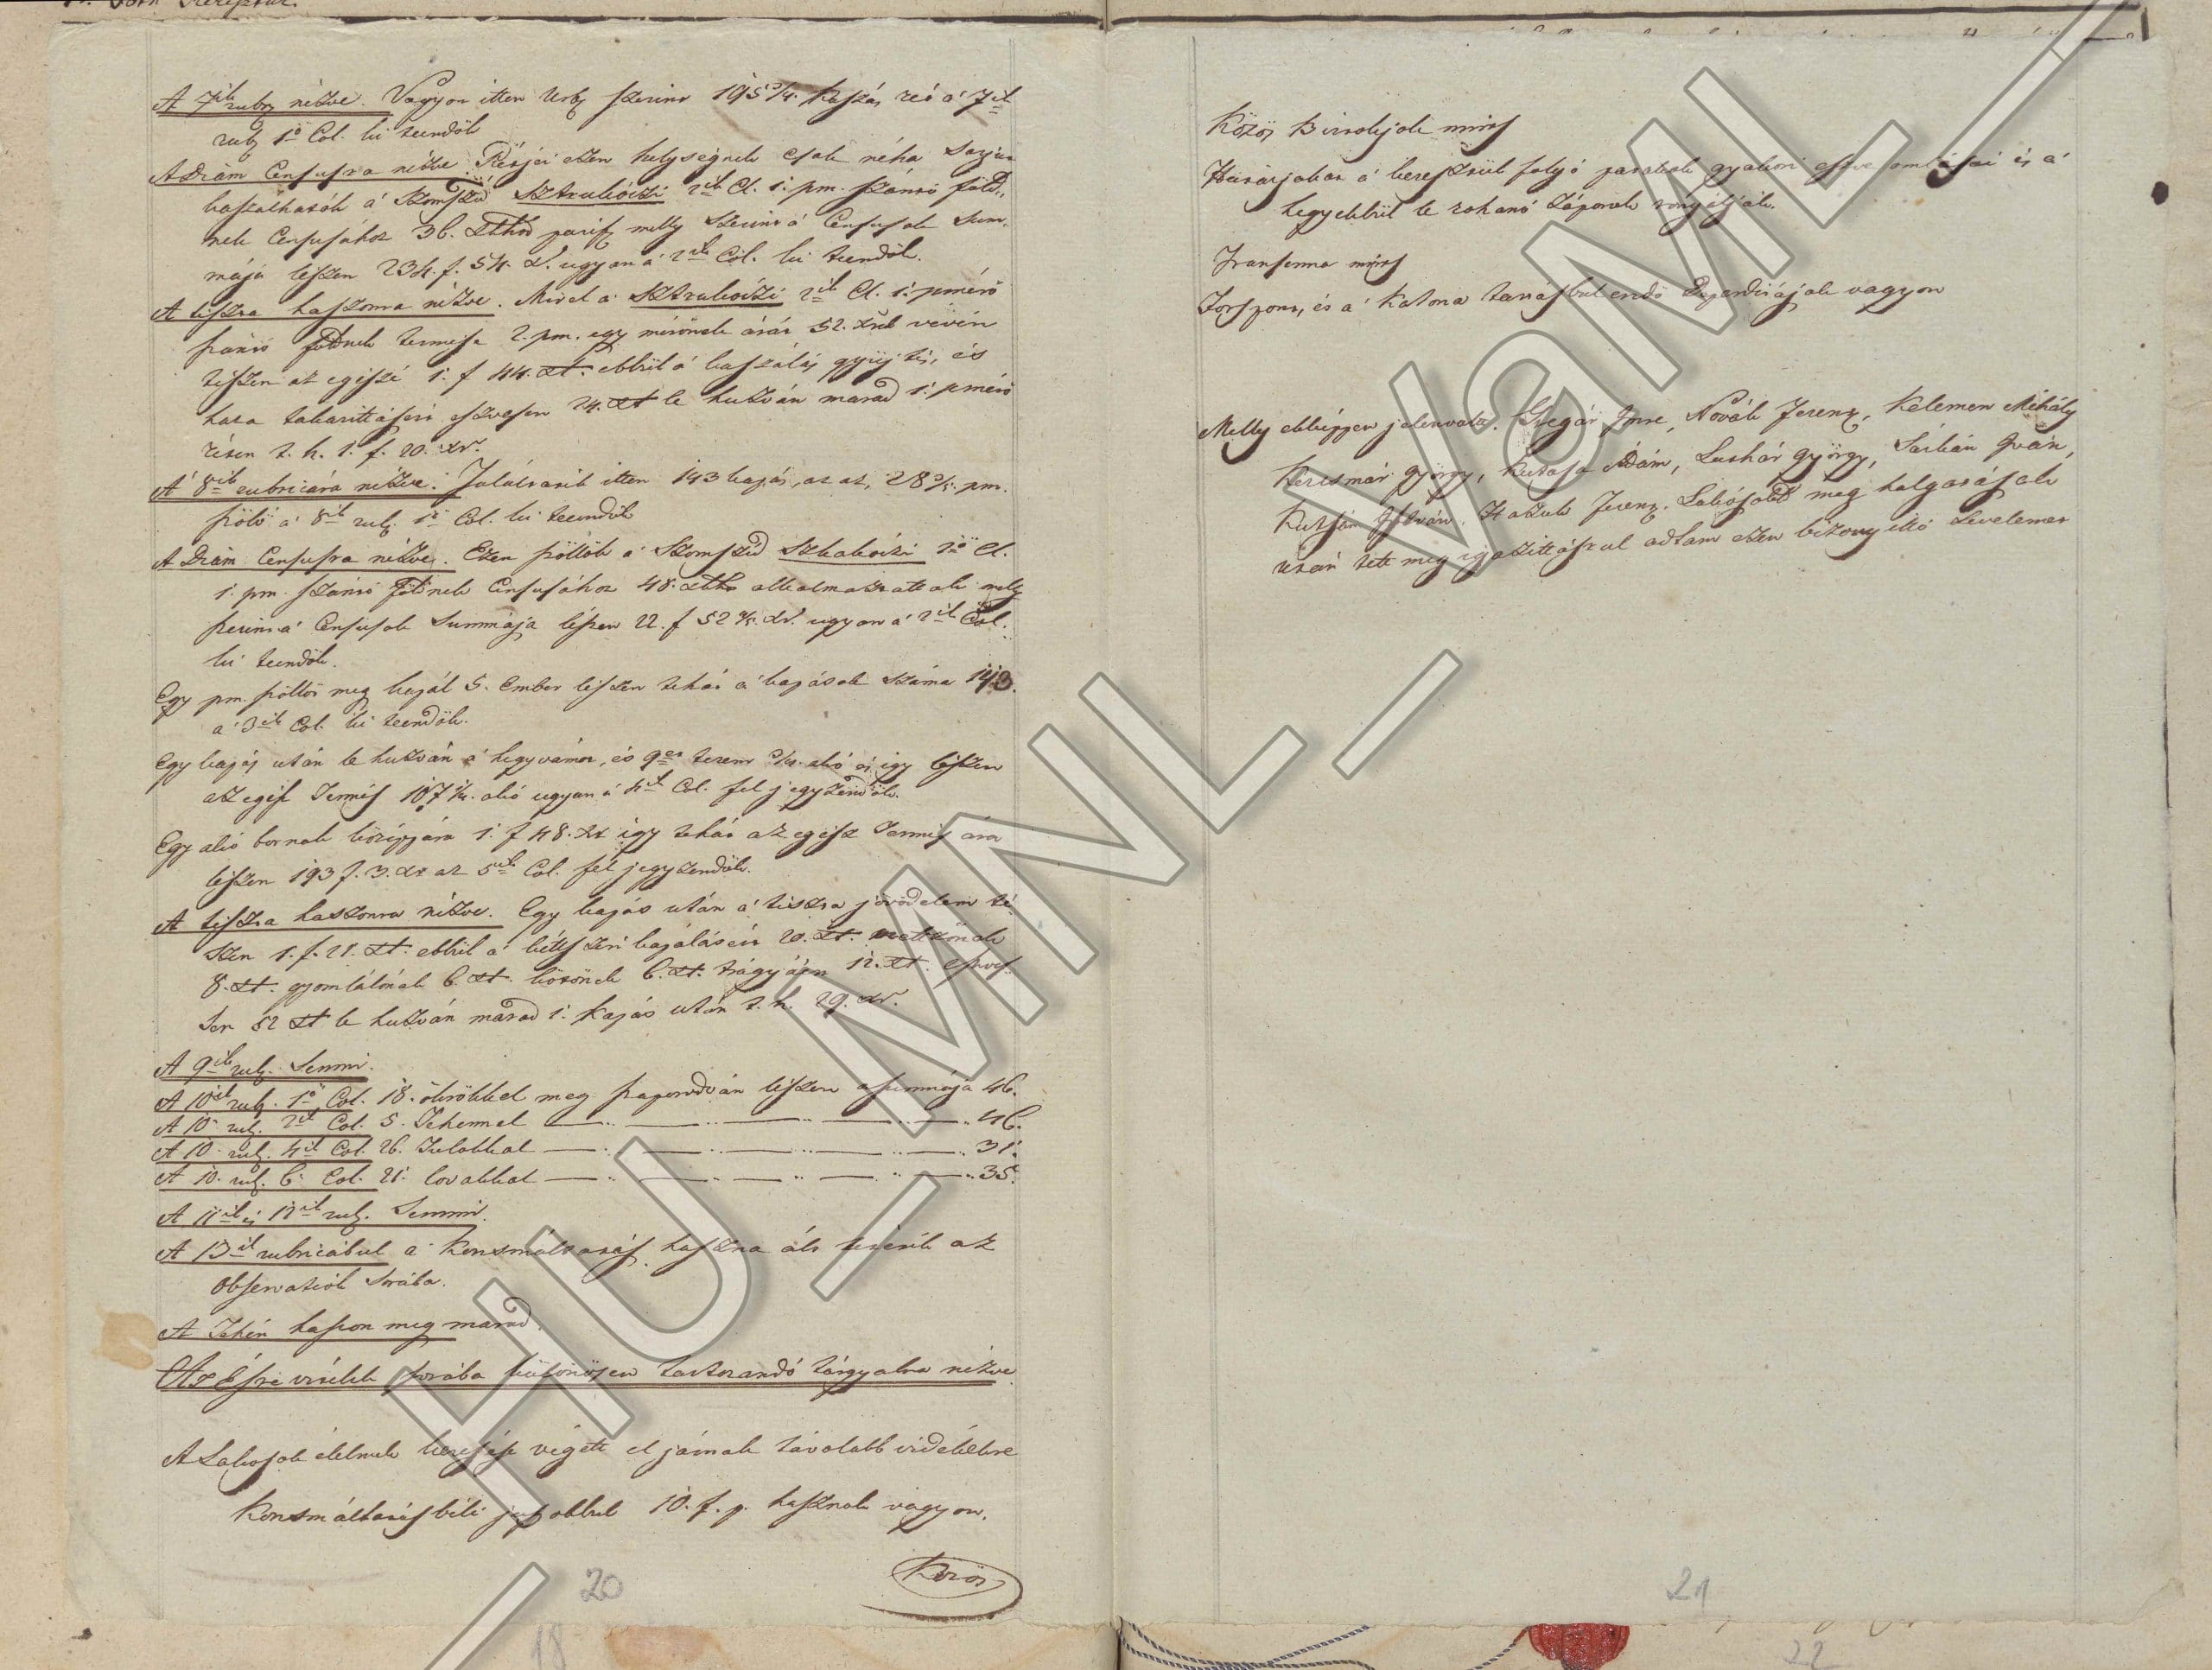 A 7ik rubr nézve. Vagyon itten Urb szerint 195 3/4 Kaszás reá a' 7ik
rub 1ő Col. ki teendők
A Diám Censusra nézve. Rétjei ezen helységnek csak néha Sarju
kaszálhatók á Szomszéd Sztrukóczi 2ik Cl. 1. pm. szántó föld,
nek Censusához 36. xtkb parif melly szerint á Censusok Sum,
mája leszen 234. f. 54. xr. ugyan a' 2ik Col. ki teendők.
A tiszta haszonra nézve. Mivel a Sztrukóczi 2ik Cl. 1. pmérő
szántó földnek termése 2. pm. egy mérőnek árát 52. xrb vévén
teszen az egészé 1. f 44. xt. ebbül á kaszálás gyüjtés, és
haza takarittásért eszvesen 24. xt le huzván marad 1. pmérő
réten t. h. 1. f. 20. xr.
A' 8ik rubricára nézve. Találtatik itten 143 kapás, az az, 28 3/5 pm.
szőlő a' 8ik rub. 1ő Col. ki teendők
A Diám Censusra nézve. Ezen szőllők a' Szomszéd Szkakóczi 1ő Cl.
1. pm. szántó Földnek Censusához 48. xtkb alkalmaztattak melly
szerint á Censusok Summája lészen 22. f 52 4/5. xr. ugyan a' 2ik Col.
ki teendők.
Egy pm. szőllőt meg kapál 5. Ember lészen tehát a' kapások száma 143.
a' 3ik Col. ki teendők.
Egy kapás után le huzván a' hegyvámot, és 9est terem 3/4. akó és így lészen
az egész Termés 107 1/4. akó ugyan a' 4ik Col. fel jegyzendők.
Egy akó bornak középára 1. f 48. xr így tehát az egész Termés ára
lészen 193 f. 3. xr az 5ik Col. fel jegyzendők.
A tiszta haszonra nézve. Egy kapás után a' tiszta jövedelem té,
szen 1. f. 21. xt. ebbül a' kéttszeri kapálásért 20. xt. mettzőnek
8. xt. gyomlálónak 6. xt. kötőnek 6. xt. trágyára 12. xt. eszves,
sen 52 xt le huzván marad 1. kapás után t. h. 29. xr.
A 9ik rub. Semmi.
A 10ik rub. 1ő Col. 18. ökrökkel meg szaporodván leszen a summája 46.
A 10. rub. 2ik Col. 5. Tehennel 46.
A 10. rub. 4ik Col. 26. Tulokkal 31.
A 10. rub. 6. Col. 21. lovakkal 35.
A 11ik és 12ik rub. Semmi.
A 13ik rubricábul a' Korcsmáltatás haszna ált tétetik az
Observatiók Sorába.
A Tehén haszon meg marad.
Az Észre vételek sorába különössen tartozandó tárgyakra nézve
A Lakosok élelmek keresése végett el járnak távolabb vidékekre
Korcsmáltatásbéli jussokbul 10. f. p. hasznok vagyon.
Közös
20
Közös Birtokjok nints
Határjokat á keresztül folyó patakok gyakori és a'
hegyekbül le rohanó záporok rongálják.
Transenna nints
Forspont, és a' Katona tartásbul eredő vagyon
Melly ekképpen jelenvaló. Imre, Novák Ferenz, Kelemen Mihály
György, Ádám, Luthár György, Iván,
István, Ferenz. Lakosokk meg halgatásjok
után tett meg igazittásrul adtam ezen bizonyittó Levelemet
21
18
22
HU_MNL_VaML_